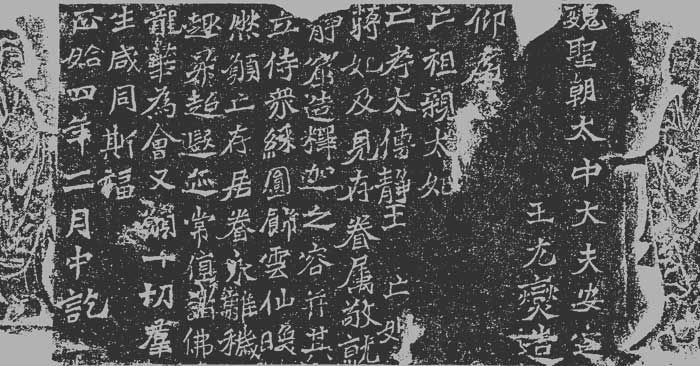 魏聖朝太中大夫安定
王元燮造
仰為
亡祖親太妃
亡考太傅靜王 亡妣
蔣妃及見存眷屬敬就
靜窟造釋迦之容并其
立侍眾綵圓飾雲仙煥
然願亡存居眷永離穢
趣昇超遐迹常值諸佛
龍華為會又願一切羣
生咸同斯福
正始四年二月中訖